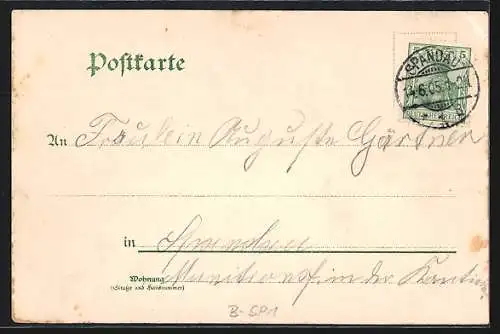 5
Postkarte
SPANDAU
14.6.05.
An Fräulein Auguste Gärtner
in Spandau
Wohnung
(Straße und Hausnummer)
in der
B-SP1